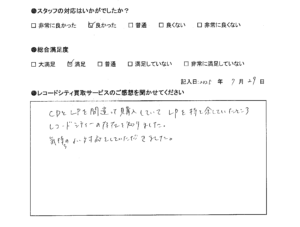 ●スタッフの対応はいかがでしたか？
□非常に良かった ☑良かった □普通 □良くない □非常に良くない
●総合満足度
□大満足 ☑満足 □普通 □満足していない □非常に満足していない
記入日:2025年 7月29日
●レコードシティ買取サービスのご感想を聞かせてください
CDとLPを間違って購入していて LPを持て余していたところ
レコードシティーの存在を知りました。
気持のよい対応をしていただきました。